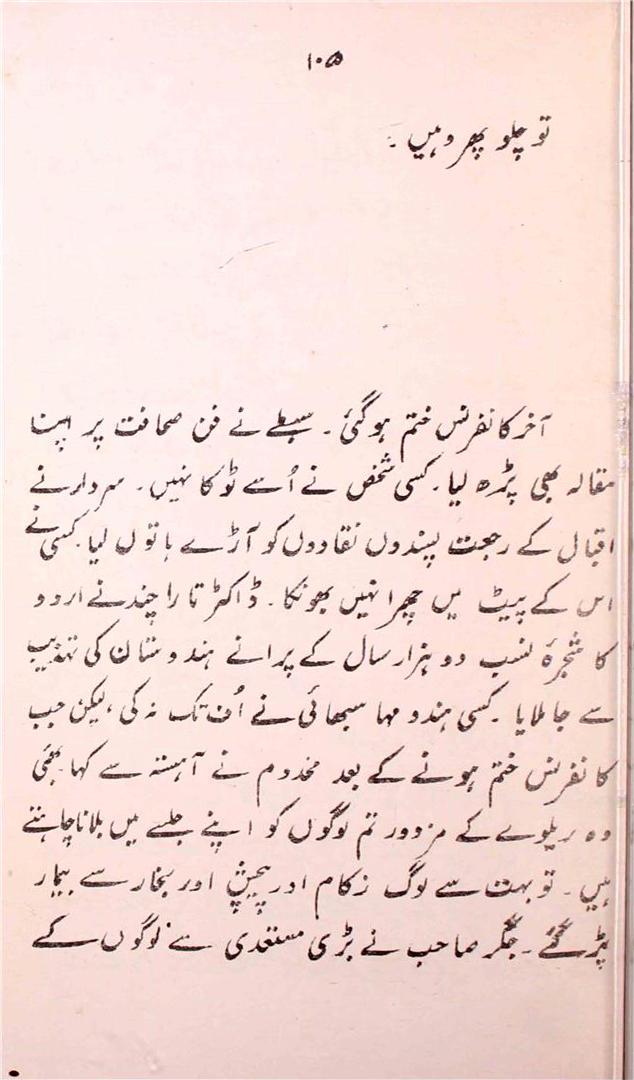 ۱۰۵
تو چلو پھر وہیں ۔
آخر کانفرنس ختم ہو گئی ۔ سبطے نے فن صحافت پر اپنا
مقالہ بھی پڑھ لیا ۔ کسی شخص نے اُسے ٹوکا نہیں ۔ سردار نے
اقبال کے رجعت پسندوں نقادوں کو آڑے ہاتوں لیا ۔ کسی نے
اس کے پیٹ میں چھرا نہیں بھونکا ۔ ڈاکٹر تارا چند نے اردو
کا شجرۂ نسب دو ہزار سال کے پرانے ہندوستان کی تہذیب
سے جا ملایا ۔ کسی ہندو مہا سبھائی نے اُف تک نہ کی ، لیکن جب
کانفرنس ختم ہونے کے بعد مخدوم نے آہستہ سے کہا ۔ بھئی
وہ ریلوے کے مزدور تم لوگوں کو اپنے جلسے میں بلانا چاہتے
ہیں ۔ تو بہت سے لوگ زکام اور پیچش اور بخار سے بیمار
پڑ گئے ۔ جگر صاحب نے بڑی مستعدی سے لوگوں کے